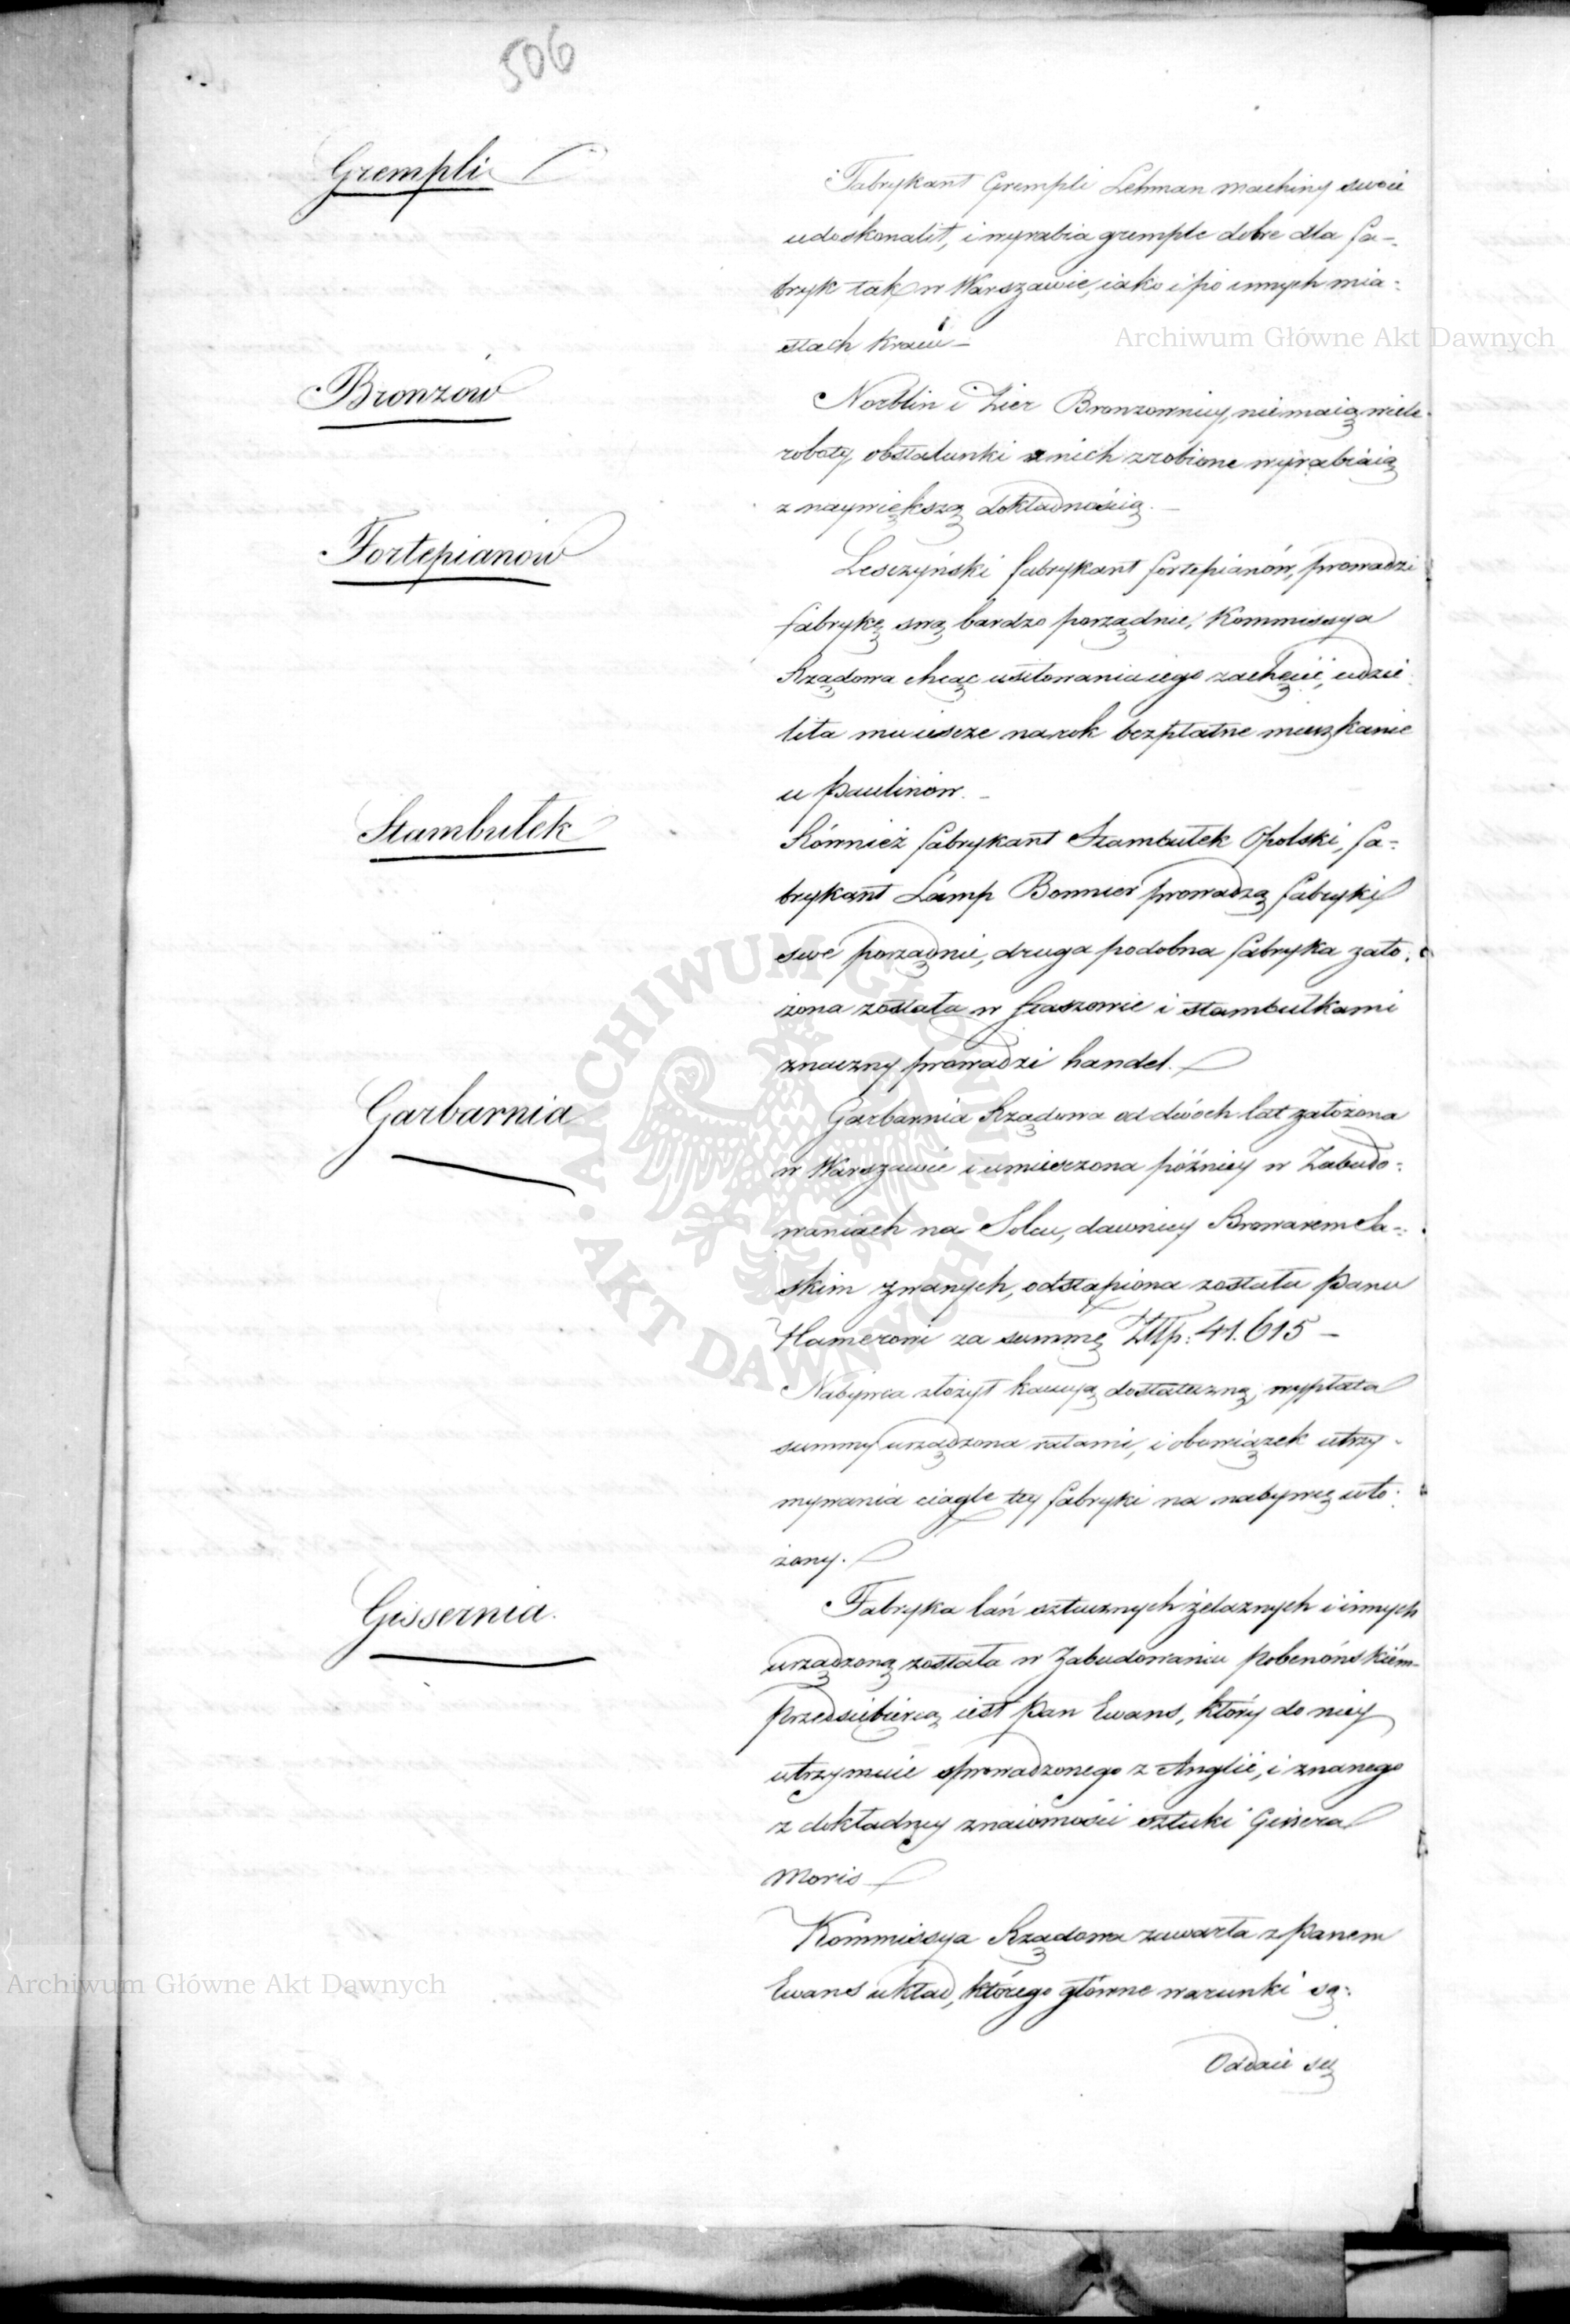 506
Grempli
Fabrykant Grempli Lehman machiny swoie
udoskonalił, i wyrabia gremple dobre dla fa-
bryk tak w Warszawie, iako i po innych mia-
stach kraiu –
Bronzów
Norblin i Zier Bronzownicy, nie maią wiele
roboty, obstalunki u nich zrobione wyrabiaią
z naywiększą dokładnością. –
Fortepianów
Lesczyński fabrykant fortepianów, prowadzi
fabrykę swą bardzo porządnie, Kommissya
Rządowa chcąc usiłowania iego zachęcić, udzie
liła mu iescze na rok bezpłatne mieszkanie
u Paulinów. –
Stambułek
Również fabrykant Stambułek Opolski, fa-
brykant Lamp Bonnier prowadzą fabryki
swe porządnie, druga podobna fabryka zało-
żona została w Staszowie i stambułkami
znaczny prowadzi handel.
Garbarnia
Garbarnia Rządowa od dwóch lat założona
w Warszawie i umiesczona późniey w Zabudo-
waniach na Solcu, dawniey Browarem Sa-
skim zwanych, odstąpiona została Panu
Hamerowi za summę Złłp: 41.615 –
Nabywca złożył kaucyą dostateczną, wypłata
summy urządzona ratami, i obowiązek utrzy-
mywania ciągle tey fabryki na nabywcę wło-
żony.
Gissernia.
Fabryka lań sztucznych żelaznych i innych
urządzoną została w Zabudowaniu Pobenońskiém
Przedsiębiercą iest Pan Ewans, który do niey
utrzymuie sprowadzonego z Anglii, i znanego
z dokładney znaiomości sztuki Gissera
Moris
Kommissya Rządowa zawarła z Panem
Ewans układ, którego główne warunki są:
Oddaie się
Archiwum Główne Akt Dawnych
Archiwum Główne Akt Dawnych
ARCHIWUM GŁÓWNE AKT DAWNYCH